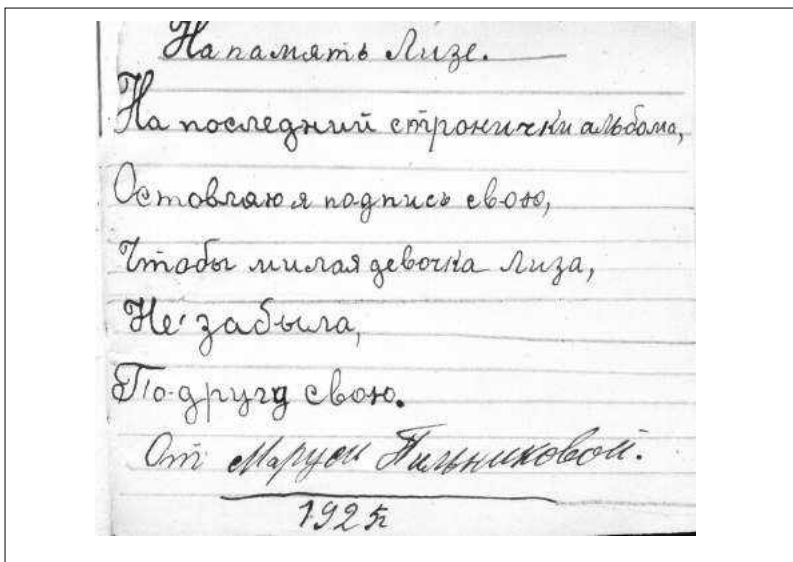 На память Лизе.
На последний стронички альбома,
Остовляю я подпись свою,
Чтобы милая девочка Лиза,
Не забыла,
По-другу свою.
От Маруси Пильниковой.
1925